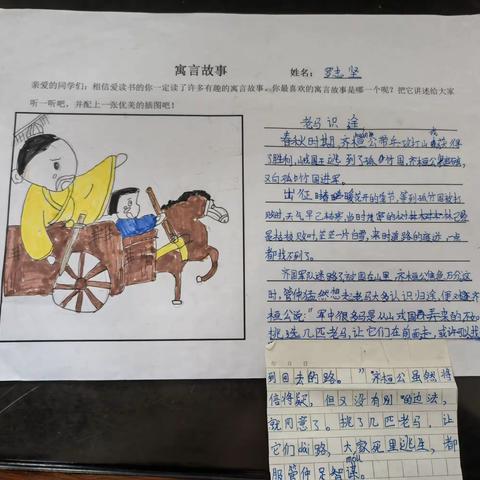 寓言故事 姓名：罗志坚
亲爱的同学们：相信爱读书的你一定读了许多有趣的寓言故事，你最喜欢的寓言故事是哪一个呢？把它讲述给大家
听一听吧，并配上一张优美的插图吧！
老马识途
春秋时期，齐桓公带兵攻打山戎，获得
了胜利，山戎国王逃到了孤竹国，齐桓公
又向孤竹国进军。
出征时春暖花开的季节，等到孤竹国被打
败时，天气早已
是枯枝败叶，茫茫一片白雪，来时道路的痕迹一点
都找不到了。
齐国军队迷路了被困在山里，齐桓公焦急万分，这
时，管仲猛然想起老马大多认识归途，便对齐
桓公说："军中很多马是从山戎国弄来的，不如
挑选几匹老马，让它们在前面走，或许可以找
到回去的路。"齐桓公虽然将
信将疑，但又没有别的办法，
就同意了。挑了几匹老马，让
它们找路，大家死里逃生，都
móu
服管仲足智谋。